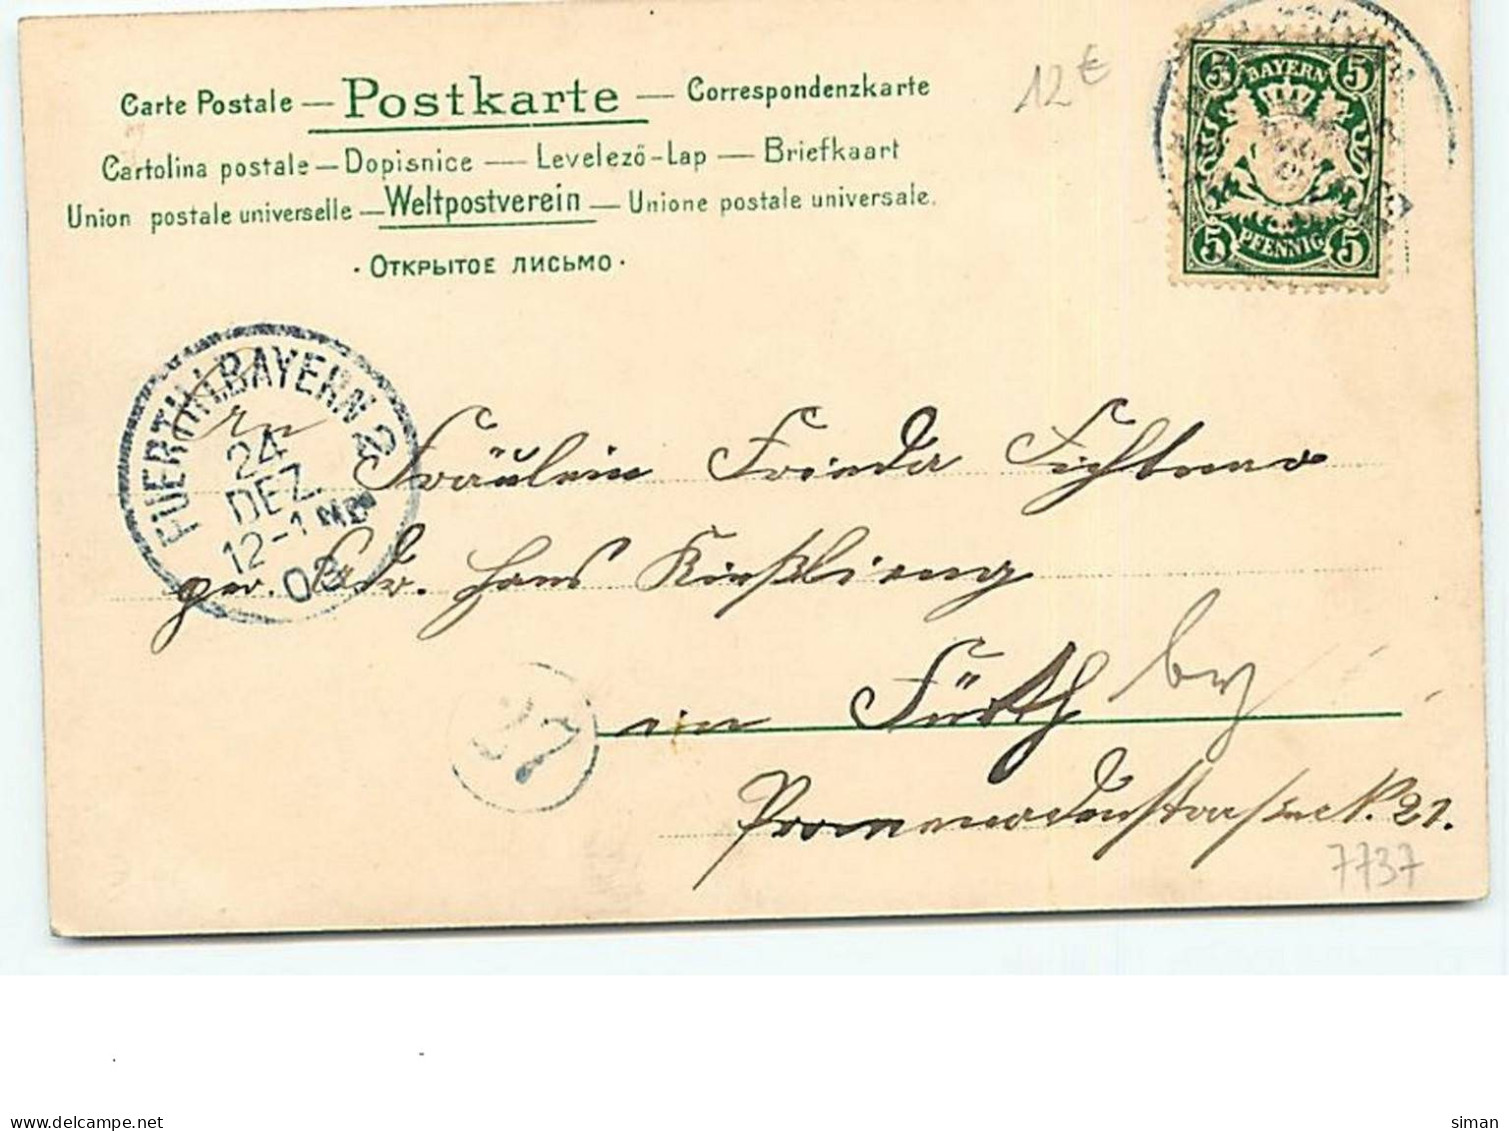 Carte Postale — Postkarte — Correspondenzkarte
Cartolina postale — Dopisnice — Levelező-Lap — Briefkaart
Union postale universelle — Weltpostverein — Unione postale universale.
· Открытое письмо ·
12 €
5 BAYERN 5
5 PFENNIG 5
FUERTH I. BAYERN 2
24
DEZ
12-1 NM
03
An
Fräulein Frieda
per. Adr. Hans Kießling
in Fürth
27
Promenadenstraße N. 21.
7737
delcampe.net
siman